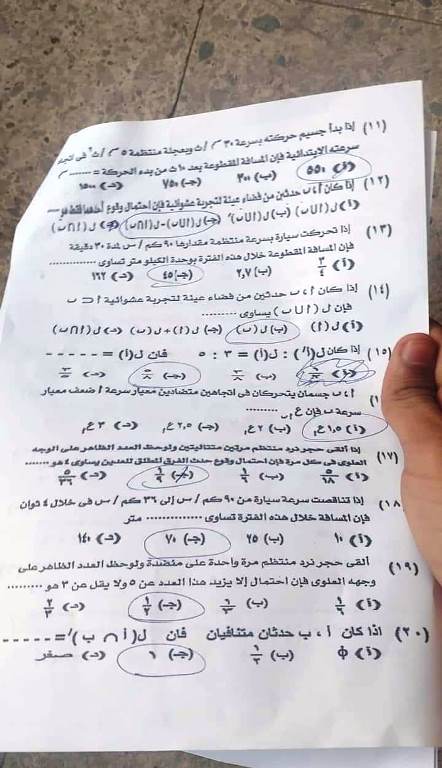 (١١) إذا بدأ جسيم حركته بسرعة ٣٠ م / ث وبعجلة منتظمة ٥ م / ث٢ في اتجاه
سرعته الابتدائية فإن المسافة المقطوعة بعد ١٠ ث من بدء الحركة = ........ م
(أ) ٥٥٠ (ب) ٣٠٠ (ج) ٧٥٠ (د) ١٥٠٠
(١٢) إذا كان أ ، ب حدثين من فضاء عينة لتجربة عشوائية فإن احتمال وقوع أحدهما فقط هو
(أ) ل(أ ∪ ب) (ب) ل(أ ∪ ب)′ (ج) ل(أ ∪ ب) - ل(أ ∩ ب) (د) ل(أ ∩ ب)
(١٣) إذا تحركت سيارة بسرعة منتظمة مقدارها ٩٠ كم / س لمدة ٣٠ دقيقة
فإن المسافة المقطوعة خلال هذه الفترة بوحدة الكيلو متر تساوى ............
(أ) ٣/٤ (ب) ٢,٧ (ج) ٤٥ (د) ١٦٢
(١٤) إذا كان أ ، ب حدثين من فضاء عينة لتجربة عشوائية أ ⊂ ب
فإن ل ( أ ∪ ب ) يساوى ..........
(أ) ل(أ) (ب) ل(ب) (ج) ل(أ) + ل(ب) (د) ل(أ ∩ ب)
(١٥) إذا كان ل(أ′) : ل(أ) = ٣ : ٥ فإن ل(أ) = - - - - -
(ب) ٣/٨ (ج) ٥/٨ (د) ٣/٥
أ ، ب جسمان يتحركان في اتجاهين متضادين معيار سرعة أ ضعف معيار
سرعة ب فإن ع أب ..........
(أ) ١,٥ ع (ب) ٢ ع (ج) ٢,٥ ع (د) ٣ ع
(١٧) إذا ألقى حجر نرد منتظم مرتين متتاليتين ولوحظ العدد الظاهر على الوجه
العلوى في كل مرة فإن احتمال وقوع حدث الفرق المطلق للعددين يساوى ٤ هو ........
(أ) ٥/١٨ (ب) ١/٩ (ج) ١/٩ (د) ٥/٣٦
(١٨ إذا تناقصت سرعة سيارة من ٩٠ كم / س إلى ٣٦ كم / س في خلال ٤ ثوان
فإن المسافة خلال هذه الفترة تساوى .............. متر
(أ) ١٠ (ب) ٢٥ (ج) ٧٠ (د) ١٤٠
(١٩) ألقى حجر نرد منتظم مرة واحدة على منضدة ولوحظ العدد الظاهر على
وجهه العلوى فإن احتمال إلا يزيد هذا العدد عن ٥ ولا يقل عن ٣ هو ..........
(أ) ١/٦ (ج) ١/٢ (د) ٢/٣
(٢٠) اذا كان أ ، ب حدثان متنافيان فان ل(أ ∩ ب)′ = - - - - -
(أ) φ (ب) ١/٢ (ج) ١ (د) صفر